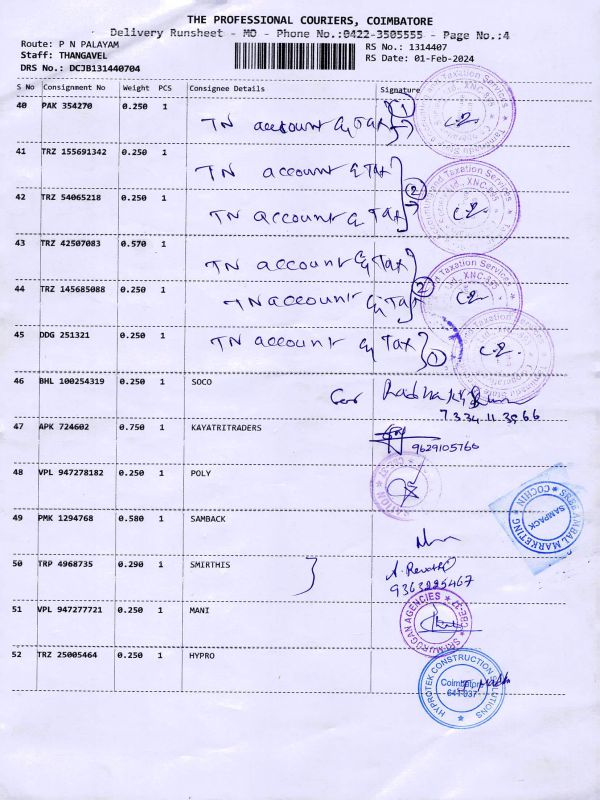 THE PROFESSIONAL COURIERS, COIMBATORE
Delivery Runsheet - MO - Phone No.:0422-3505555 - Page No.:4
Route: P N PALAYAM
RS No.: 1314407
Staff: THANGAVEL
RS Date: 01-Feb-2024
DRS No.: DCJB131440704
S No Consignment No Weight PCS Consignee Details Signature
40 PAK 354270 0.250 1
TN account & Tax 1
41 TRZ 155691342 0.250 1
TN account & Tax
2
42 TRZ 54065218 0.250 1
TN account & Tax
43 TRZ 42507083 0.570 1
TN account & Tax
2
44 TRZ 145685088 0.250 1
TN account & Tax
45 DDG 251321 0.250 1
TN account & Tax 1
46 BHL 100254319 0.250 1 SOCO
47 APK 724602 0.750 1 KAYATRITRADERS
9629105766
48 VPL 947278182 0.250 1 POLY
49 PMK 1294768 0.580 1 SAMBACK
SRSB AMBAL MARKETING * COCHIN *
SAMPACK
50 TRP 4968735 0.290 1 SMIRTHIS
A. Revathi
51 VPL 947277721 0.250 1 MANI
SRI MURUGAN AGENCIES * CBE-37 *
52 TRZ 25005464 0.250 1 HYPRO
HYPROTEK CONSTRUCTION SOLUTIONS
Coimbatore
641 037